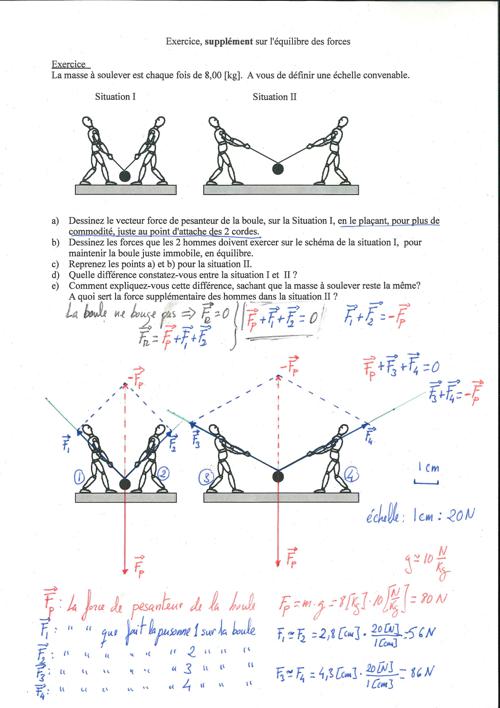 Exercice, supplément sur l'équilibre des forces
Exercice
La masse à soulever est chaque fois de 8,00 [kg]. A vous de définir une échelle convenable.
Situation I Situation II
a) Dessinez le vecteur force de pesanteur de la boule, sur la Situation I, en le plaçant, pour plus de
commodité, juste au point d'attache des 2 cordes.
b) Dessinez les forces que les 2 hommes doivent exercer sur le schéma de la situation I, pour
maintenir la boule juste immobile, en équilibre.
c) Reprenez les points a) et b) pour la situation II.
d) Quelle différence constatez-vous entre la situation I et II ?
e) Comment expliquez-vous cette différence, sachant que la masse à soulever reste la même?
A quoi sert la force supplémentaire des hommes dans la situation II ?
La boule ne bouge pas ⇒ F⃗R = 0 } F⃗p + F⃗1 + F⃗2 = 0 F⃗1 + F⃗2 = -F⃗p
F⃗R = F⃗p + F⃗1 + F⃗2
-F⃗p -F⃗p F⃗p + F⃗3 + F⃗4 = 0
F⃗3 + F⃗4 = -F⃗p
F⃗1 F⃗2 F⃗3 F⃗4
1 2 3 4
1 cm
échelle : 1 cm : 20 N
F⃗p F⃗p
g ≃ 10 N/kg
F⃗p : La force de pesanteur de la boule Fp = m·g = 8 [kg] · 10 [N/kg] = 80 N
F⃗1 : " " que fait la personne 1 sur la boule F1 ≃ F2 = 2,8 [cm] · 20 [N]/1 [cm] = 56 N
F⃗2 : " " " " " 2 " " "
F⃗3 : " " " " " 3 " " " F3 ≃ F4 = 4,3 [cm] · 20 [N]/1 [cm] = 86 N
F⃗4 : " " " " " 4 " " "